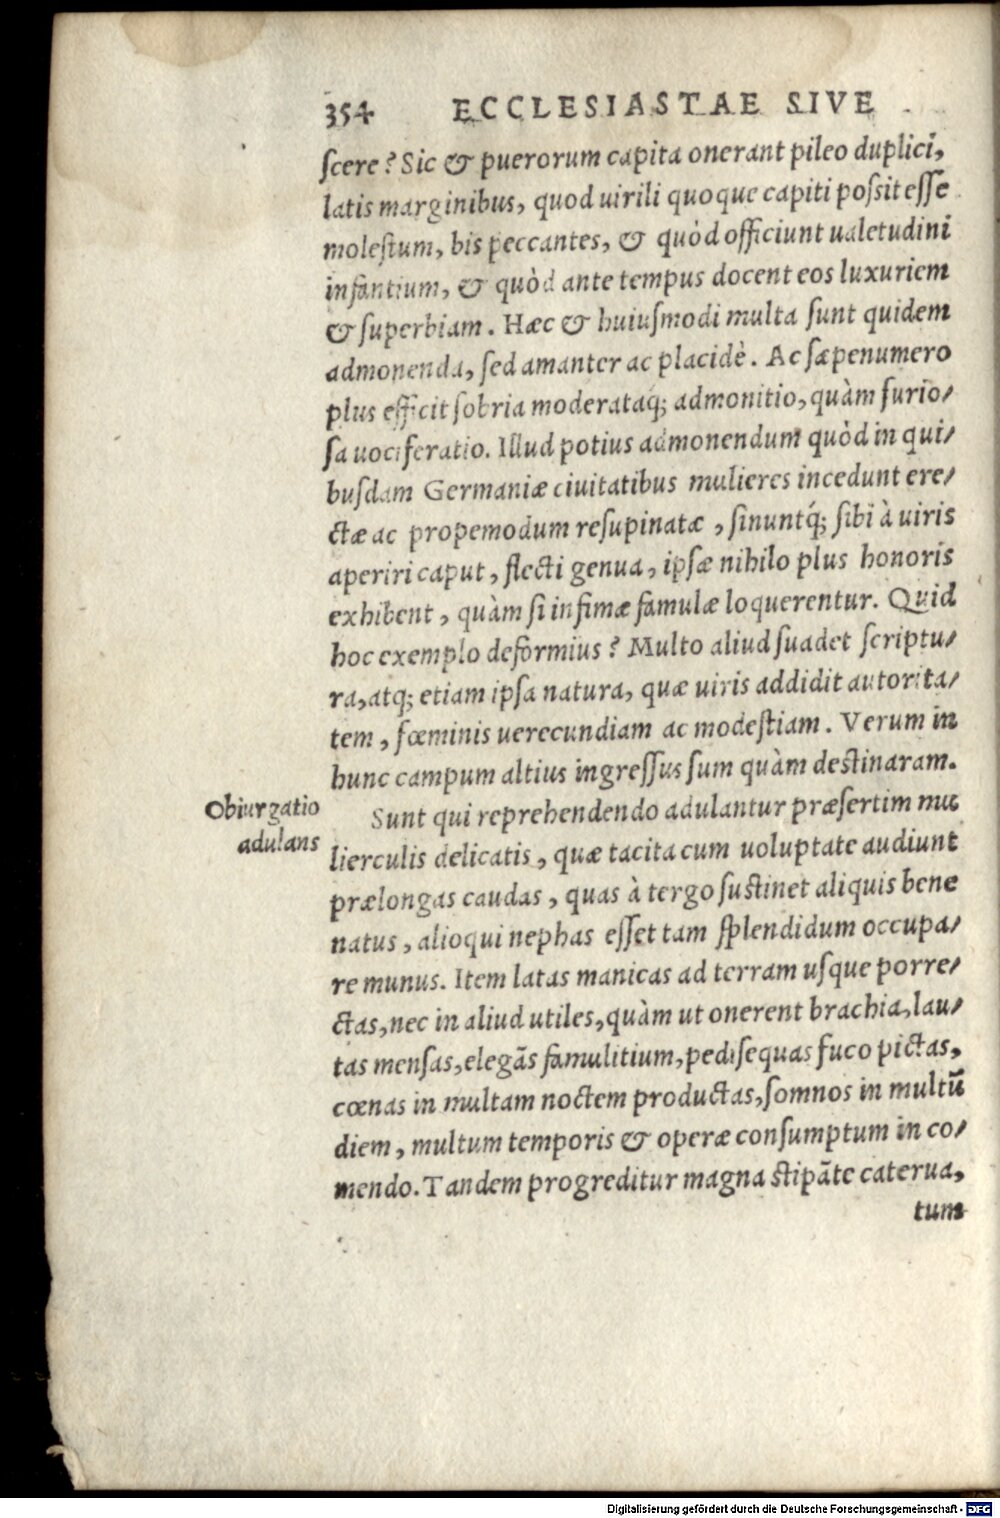 354 ECCLESIASTAE SIVE
ſcere? Sic & puerorum capita onerant pileo duplici,
latis marginibus, quod uirili quoque capiti poſsit eſſe
moleſtum, bis peccantes, & quòd officiunt ualetudini
infantium, & quòd ante tempus docent eos luxuriem
& ſuperbiam. Hæc & huiuſmodi multa ſunt quidem
admonenda, ſed amanter ac placidè. Ac ſæpenumero
plus efficit ſobria moderataq́; admonitio, quàm furio/
ſa uociferatio. Illud potius admonendum quòd in qui/
buſdam Germaniæ ciuitatibus mulieres incedunt ere/
ctæ ac propemodum reſupinatæ, ſinuntq́; ſibi à uiris
aperiri caput, flecti genua, ipſæ nihilo plus honoris
exhibent, quàm ſi infimæ famulæ loquerentur. Quid
hoc exemplo deformius? Multo aliud ſuadet ſcriptu/
ra, atq; etiam ipſa natura, quæ uiris addidit autorita/
tem, fœminis uerecundiam ac modeſtiam. Verum in
hunc campum altius ingreſſus ſum quàm deſtinaram.
Obiurgatio
adulans
Sunt qui reprehendendo adulantur præſertim mu
lierculis delicatis, quæ tacita cum uoluptate audiunt
prælongas caudas, quas à tergo ſuſtinet aliquis bene
natus, alioqui nephas eſſet tam ſplendidum occupa/
re munus. Item latas manicas ad terram uſque porre/
ctas, nec in aliud utiles, quàm ut onerent brachia, lau/
tas menſas, elegās famulitium, pediſequas fuco pictas,
cœnas in multam noctem productas, ſomnos in multū
diem, multum temporis & operæ conſumptum in co/
mendo. Tandem progreditur magna ſtipāte caterua,
tum
Digitalisierung gefördert durch die Deutsche Forschungsgemeinschaft - DFG